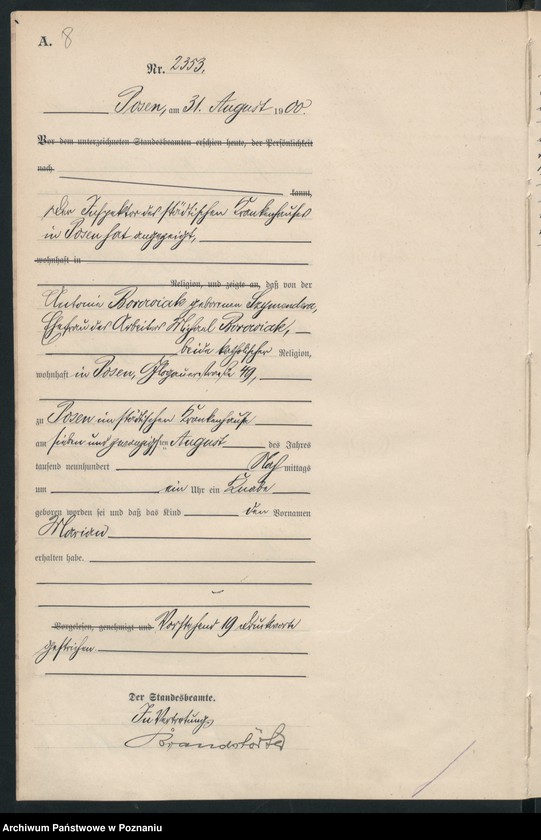 A. 8
Nr. 2353.
Posen, am 31. August 1900.
Vor dem unterzeichneten Standesbeamten erschien heute, der Persönlichkeit
nach
kannt,
Der Inspektor des städtischen Krankenhauses
in Posen hat angezeigt,
wohnhaft in
Religion, und zeigte an, daß von der
Antonie Borowiak geborenen
Ehefrau des Arbeiters Michael Borowiak,
beide katholischer Religion,
wohnhaft in Posen, Glogauerstraße 49,
zu Posen im städtischen Krankenhause
am sieben und zwanzigsten August des Jahres
tausend neunhundert Nachmittags
um ein Uhr ein Knabe
geboren worden sei und daß das Kind den Vornamen
Marian
erhalten habe.
Vorgelesen, genehmigt und Vorstehend 19 Druckworte
gestrichen.
Der Standesbeamte.
In Vertretung
Archiwum Państwowe w Poznaniu